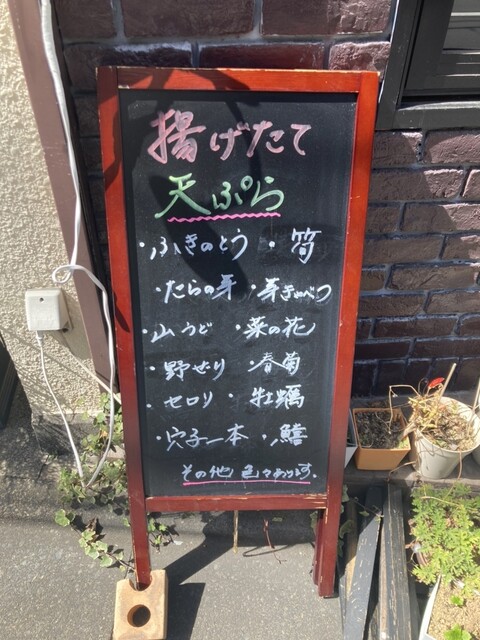 揚げたて
天ぷら
・ふきのとう ・筍
・たらの芽 ・芽きゃべつ
・山うど ・菜の花
・野せり ・春菊
・セロリ ・牡蠣
・穴子一本 ・鱚
その他色々あります。